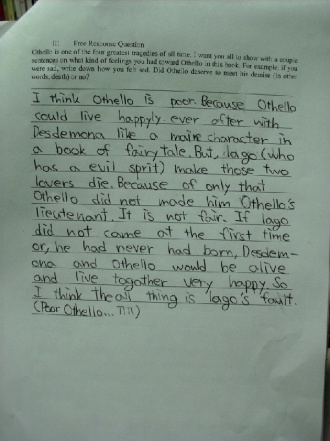 III Free Response Question
Othello is one of the four greatest tragedies of all time. I want you all to show with a couple
sentences on what kind of feelings you had toward Othello in this book. For example, if you
were sad, write down how you felt sad. Did Othello deserve to meet his demise (in other
words, death) or no?
I think Othello is poor. Because Othello
could live happyly ever after with
Desdemona like a maine character in
a book of fairytale. But, Iago (who
has a evil sprit) make those two
lovers die. Because of only that
Othello did not made him Othello's
lieutenant. It is not fair. If Iago
did not came at the first time
or, he had never had born, Desdem-
ona and Othello would be alive
and live togather very happy. So
I think the all thing is Iago's fault.
(Poor Othello... ㅠㅠ)